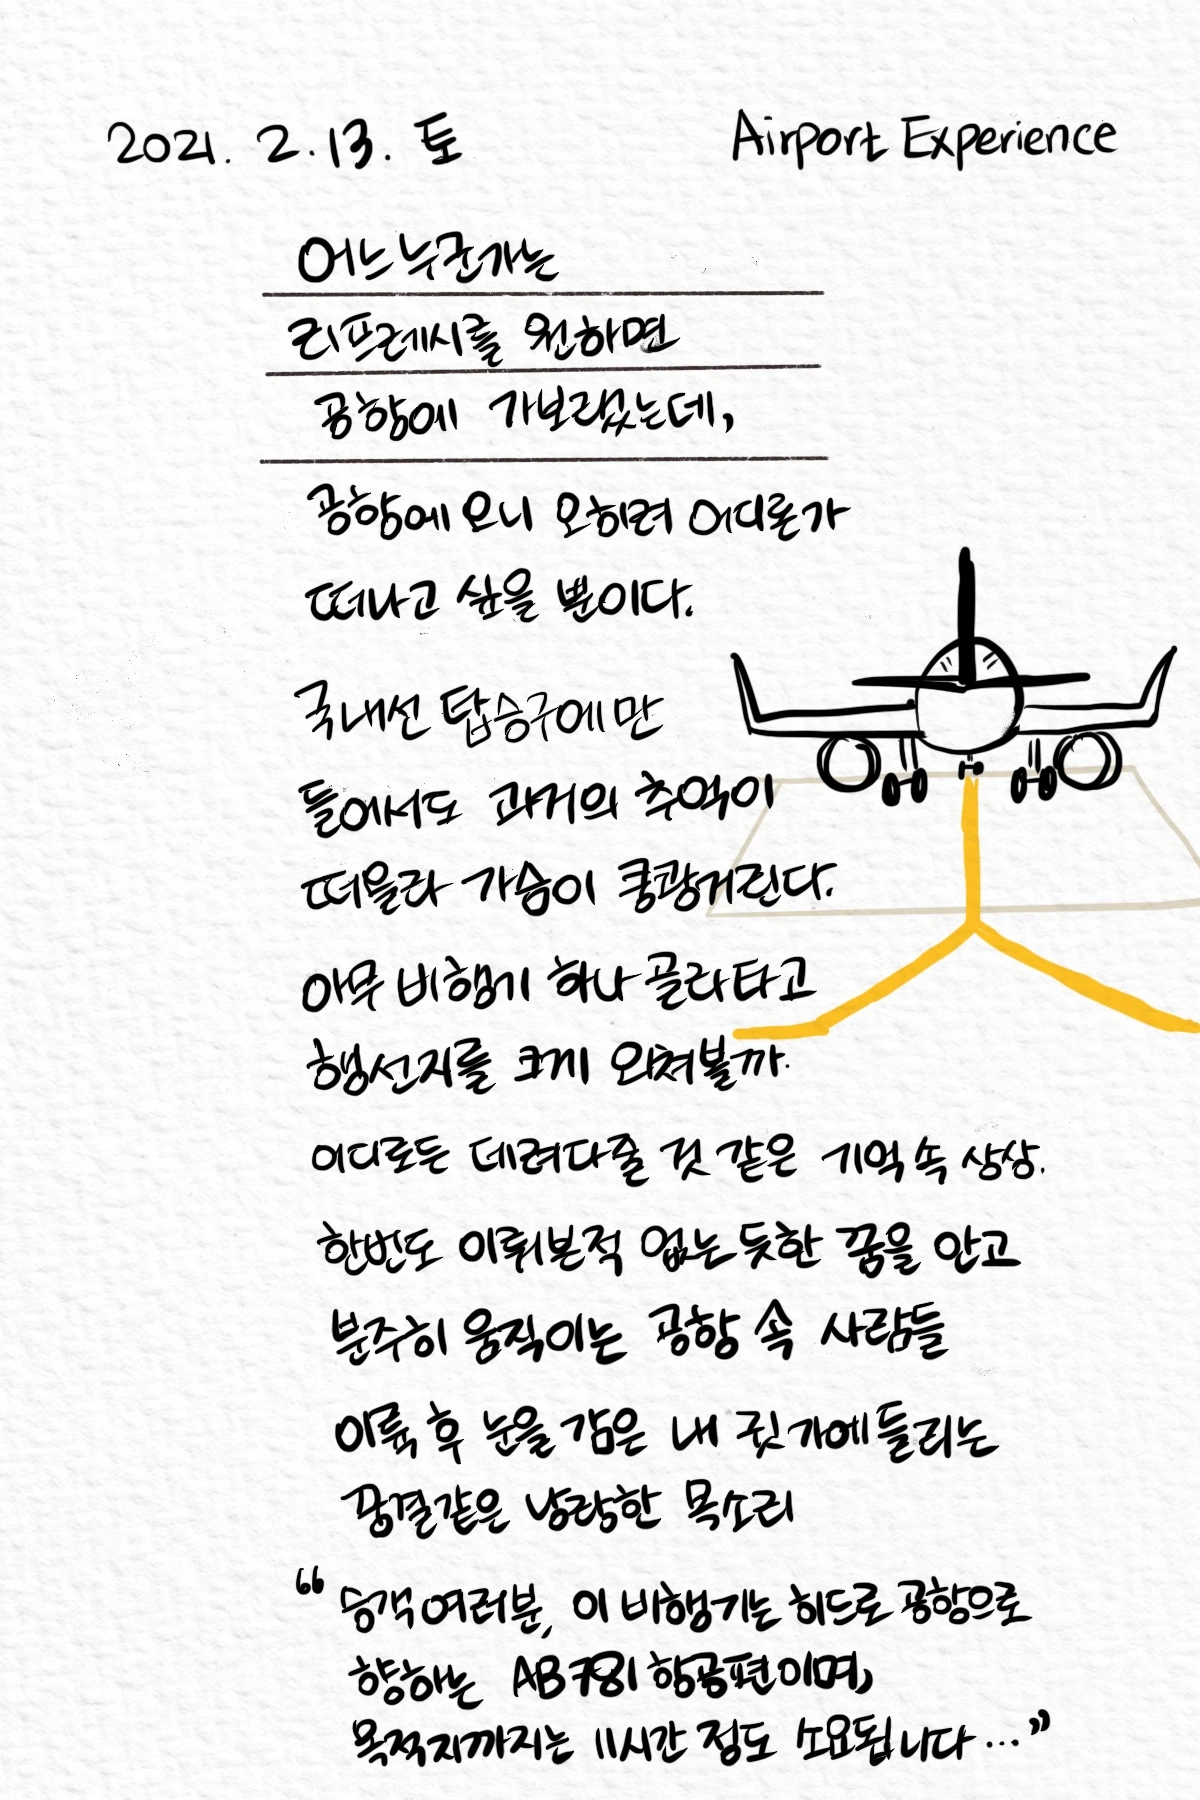 2021. 2. 13. 토
Airport Experience
어느누군가는
리프레시를 원하면
공항에 가보랬는데,
공항에 오니 오히려 어디론가
떠나고 싶을 뿐이다.
국내선 탑승구에만
들어서도 과거의 추억이
떠올라 가슴이 쿵쾅거린다.
아무 비행기 하나 골라타고
행선지를 크게 외쳐볼까.
어디로든 데려다줄 것 같은 기억 속 상상.
한번도 이뤄본적 없는 듯한 꿈을 안고
분주히 움직이는 공항 속 사람들
이륙 후 눈을 감은 내 귓가에 들리는
꿈결같은 낭랑한 목소리
“ 승객여러분, 이 비행기는 히드로 공항으로
향하는 AB781 항공편이며,
목적지까지는 11시간 정도 소요됩니다...”